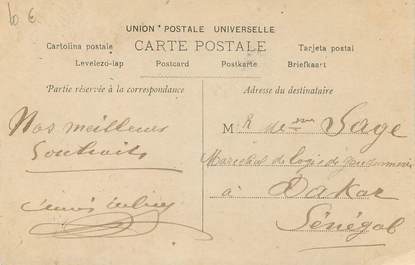 10 €
UNION POSTALE UNIVERSELLE
CARTE POSTALE
Cartolina postale
Tarjeta postal
Levelezo-lap
Postcard
Postkarte
Briefkaart
Partie réservée à la correspondance
Nos meilleurs
Souhaits
Adresse du destinataire
M. R de Sage
Marechal de logis de gendarmerie
à Dakar
Sénégal